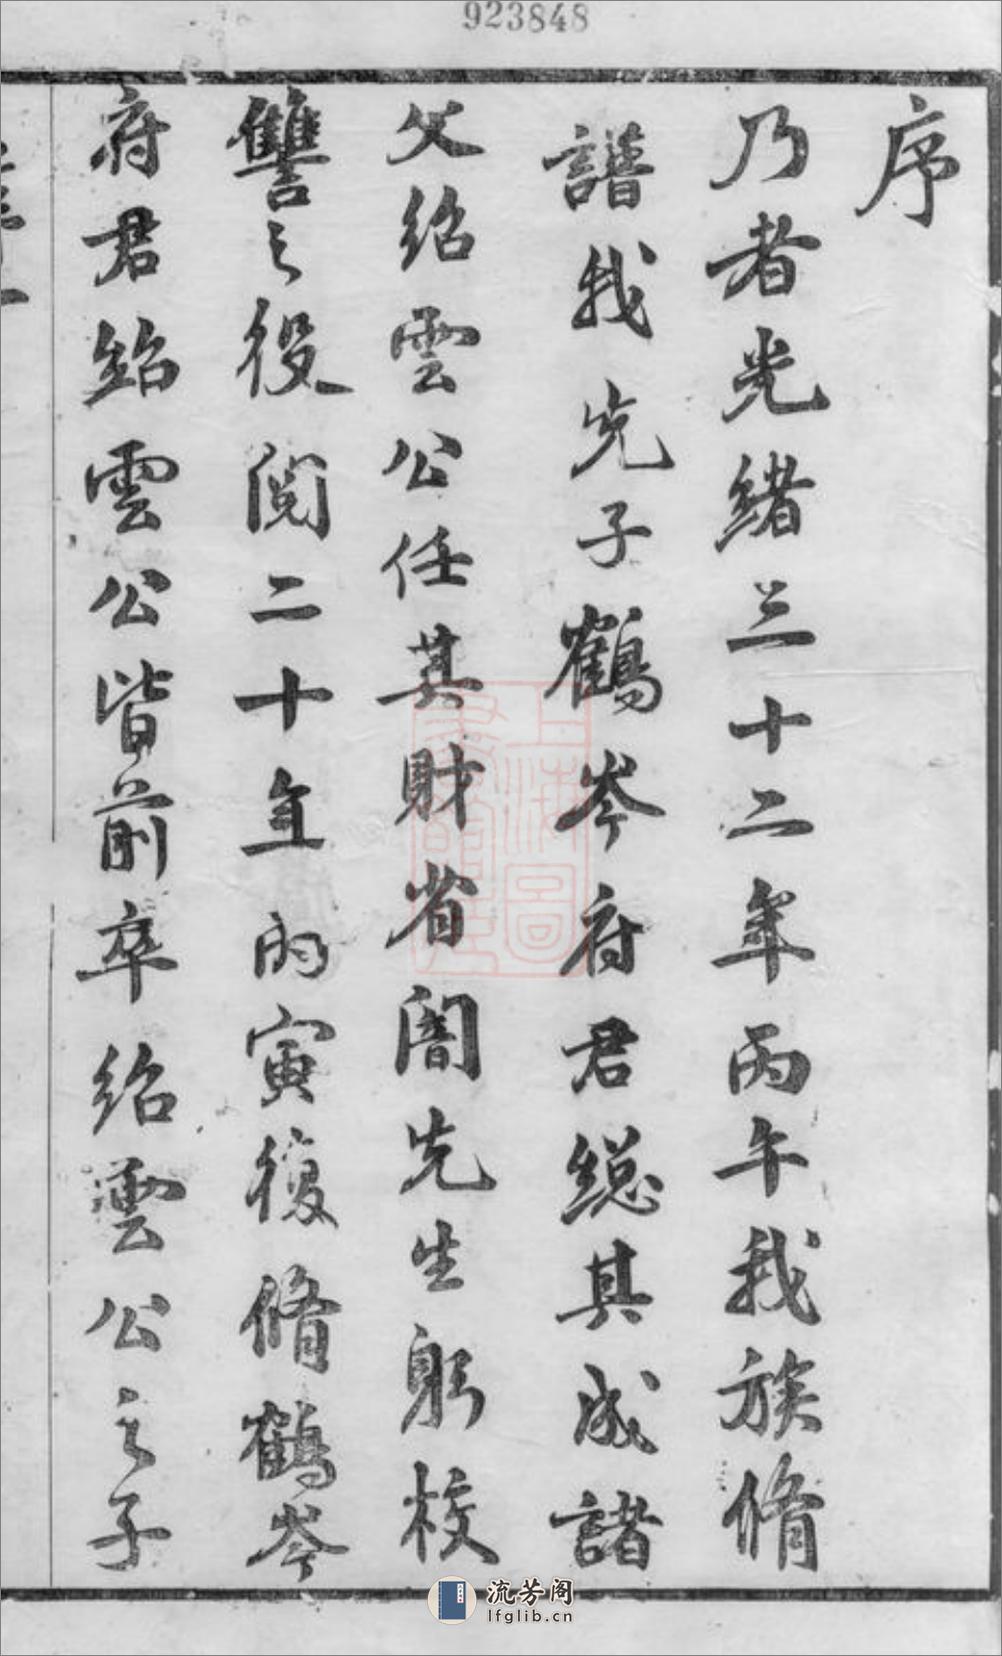 923848
序
乃者光緒三十二年丙午我族脩
譜我先子鶴岑府君總其成諸
父紹雲公任其財省闇先生躬校
讐之役閱二十年而寅復脩鶴岑
府君紹雲公皆前卒紹雲公之子
上海圖書館藏
流芳阁
lfglib.cn